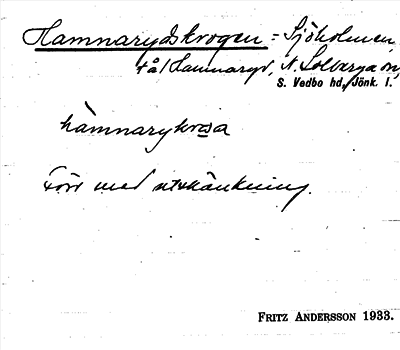 Hamnarydskrogen = Sjöholmen
t å l Hamnaryd, N. Solberga sn,
S. Vedbo hd, Jönk. l.
hàmnarykroa
Förr med utskänkning.
FRITZ ANDERSSON 1933.